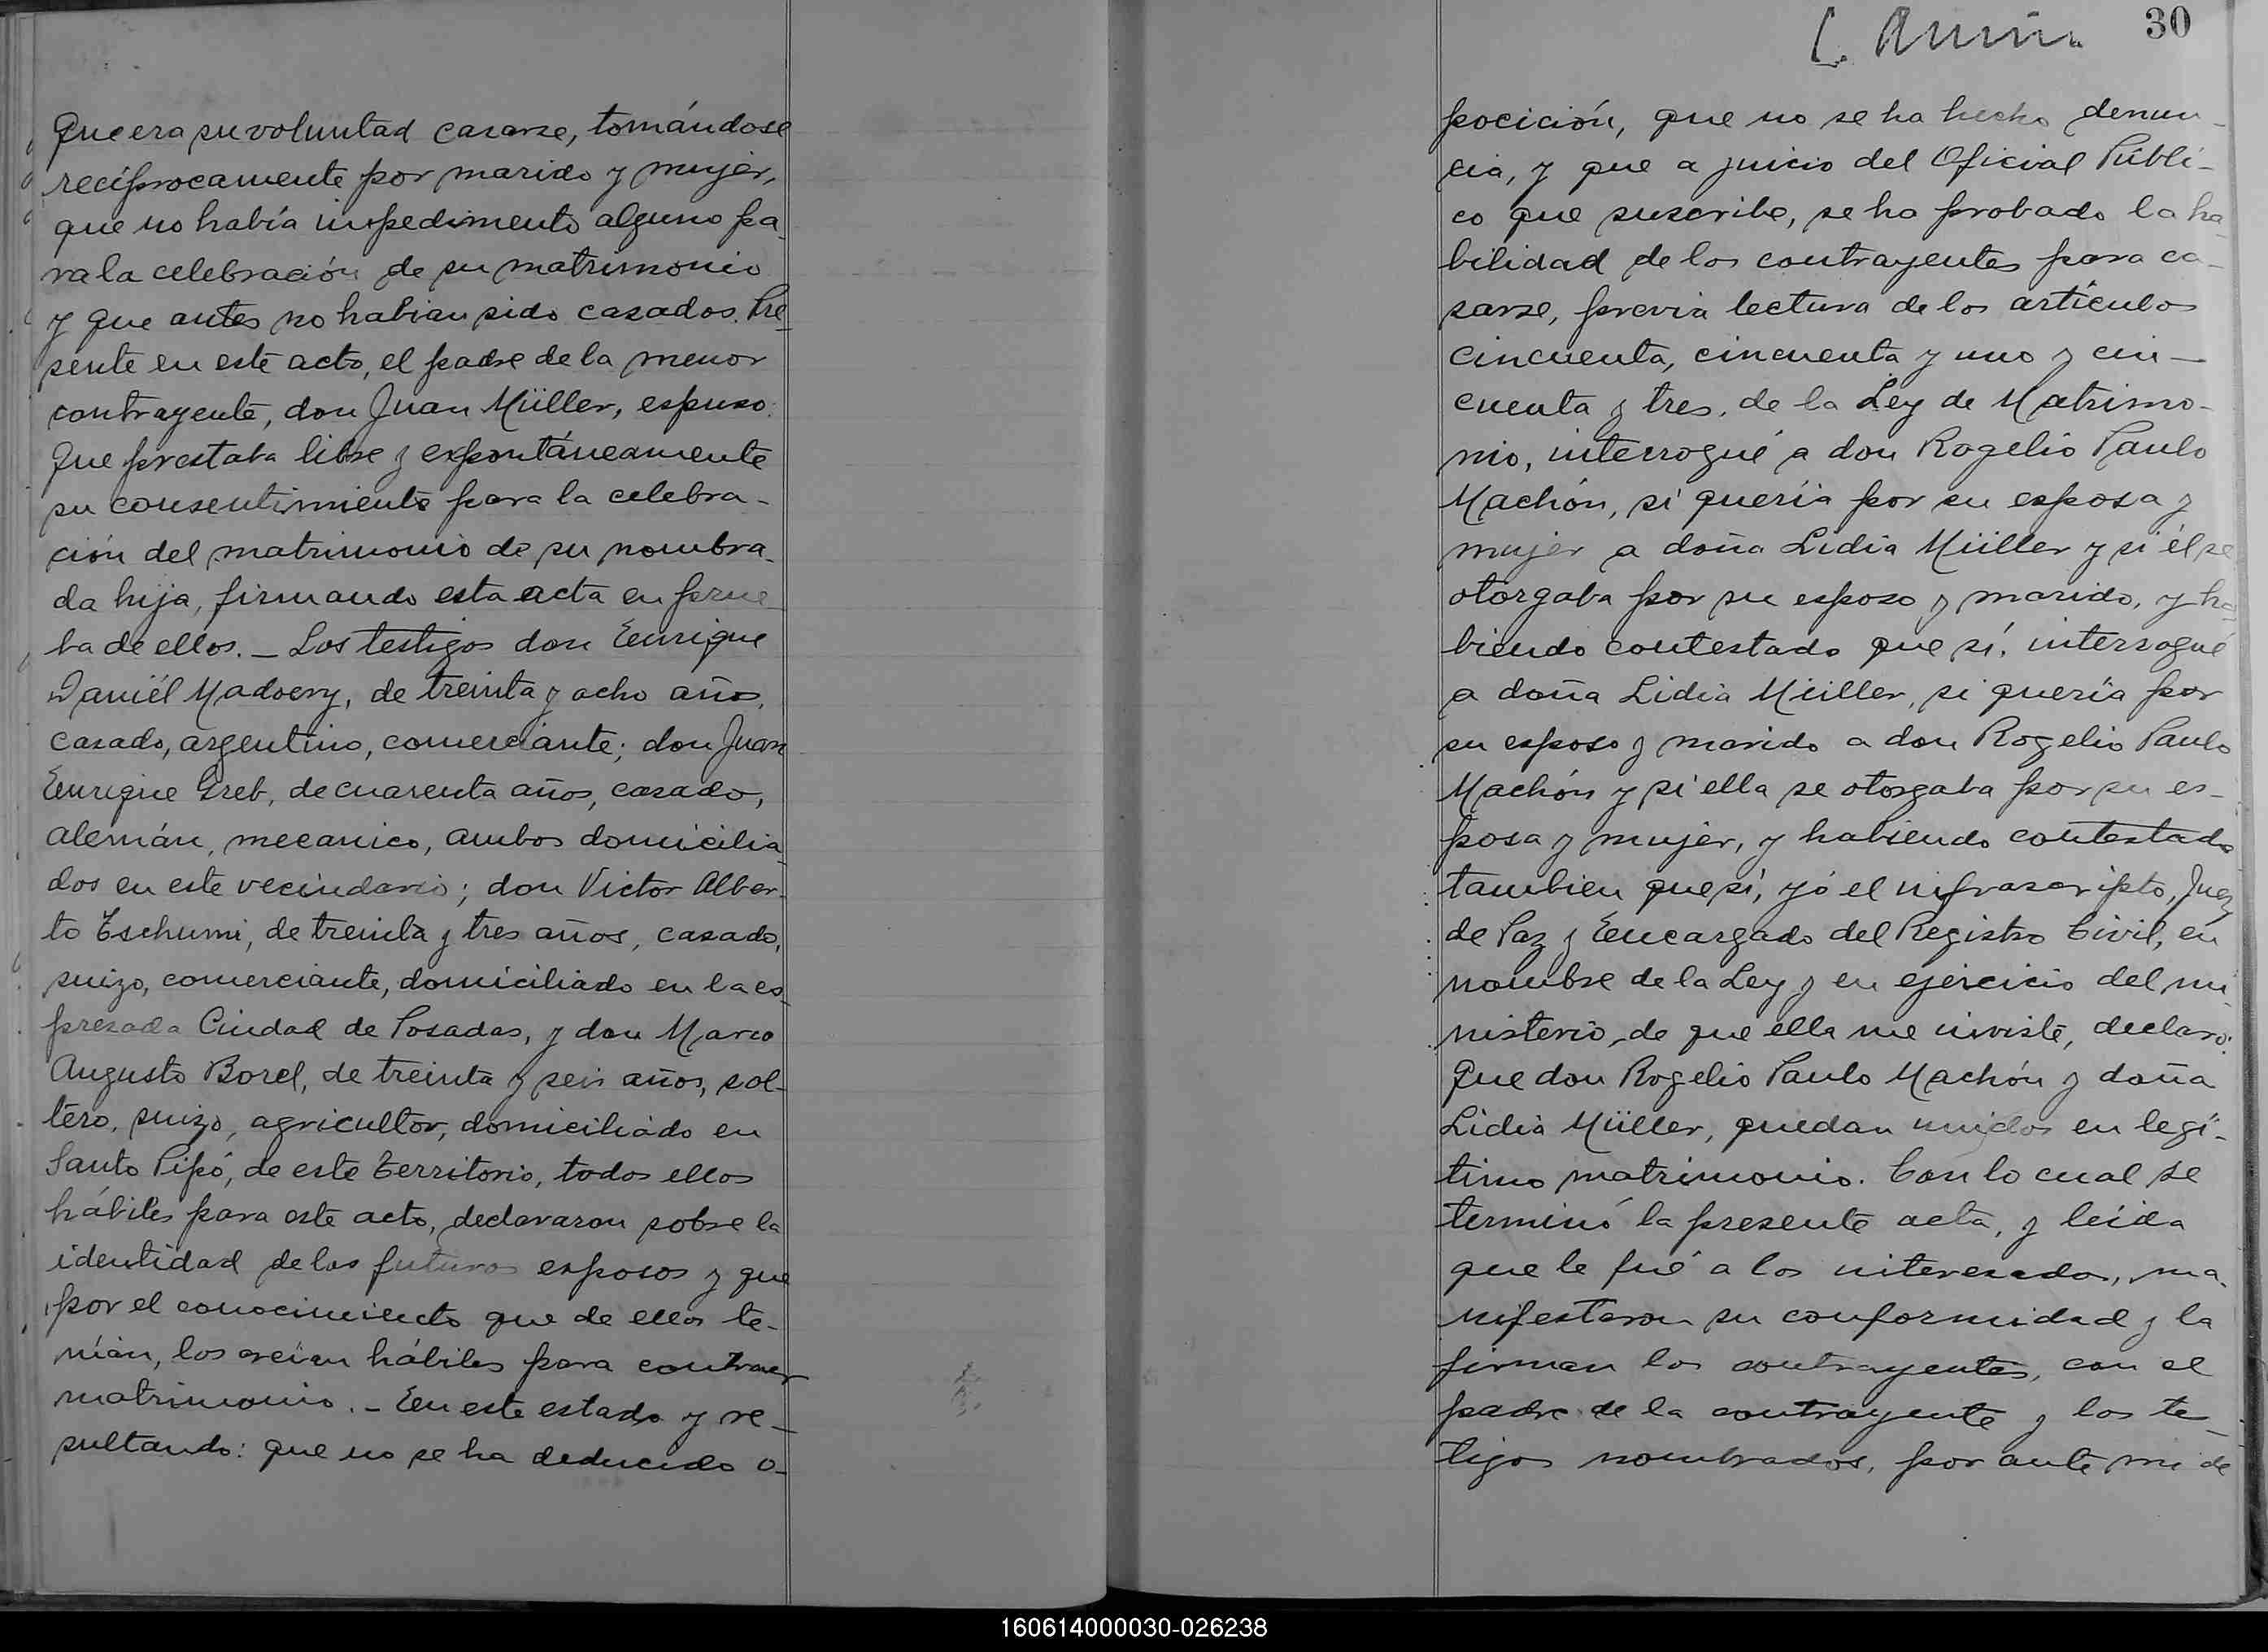 Que era su voluntad casarse, tomándose
recíprocamente por marido y mujer,
que no había impedimento alguno pa-
ra la celebración de su matrimonio
y que antes no habian sido casados. Pre-
sente en este acto, el padre de la menor
contrayente, don Juan Müller, espuso:
Que prestaba libre y expontáneamente
su consentimiento para la celebra-
ción del matrimonio de su nombra-
da hija, firmando esta acta en prue-
ba de ellos. - Los testigos don Enrique
Daniél Madoery, de treinta y ocho años,
casado, argentino, comerciante; don Juan
Enrique Greb, de cuarenta años, casado,
alemán, mecanico, ambos domicilia-
dos en este vecindario; don Victor Alber-
to Tschumi, de treinta y tres años, casado,
suizo, comerciante, domiciliado en la es-
presada Ciudad de Posadas, y don Marco
Augusto Borel, de treinta y seis años, sol-
tero, suizo, agricultor, domiciliado en
Santo Pipó, de este territorio, todos ellos
hábiles para este acto, declararon sobre la
identidad de los futuros esposos y que
por el conocimiento que de ellos te-
nián, los creían hábiles para contraer
matrimonio. - En este estado y re-
sultando: que no se ha deducido o-
30
posición, que no se ha hecho denun-
cia, y que a juicio del Oficial Públi-
co que suscribe, se ha probado la ha-
bilidad de los contrayentes para ca-
sarse, previa lectura de los artículos
cincuenta, cincuenta y uno y cin-
cuenta y tres, de la Ley de Matrimo-
nio, interrogué a don Rogelio Paulo
Machón, si quería por su esposa y
mujer a doña Lidia Müller y si él se
otorgaba por su esposo y marido, y ha-
biendo contestado que sí, interrogué
a doña Lidia Müller, si quería por
su esposo y marido a don Rogelio Paulo
Machón y si ella se otorgaba por su es-
posa y mujer, y habiendo contestado
tambien que sí, yó el infrascripto, Juez
de Paz y Encargado del Registro Civil, en
nombre de la Ley y en ejercicio del mi-
nisterio, de que ella me inviste, declaro:
Que don Rogelio Paulo Machón y doña
Lidia Müller, quedan unidos en legí-
timo matrimonio. Con lo cual se
terminó la presente acta, y leida
que le fué a los interesados, ma-
nifestaron su conformidad y la
firman los contrayentes, con el
padre de la contrayente y los te-
tigos nombrados, por ante mi de
160614000030-026238